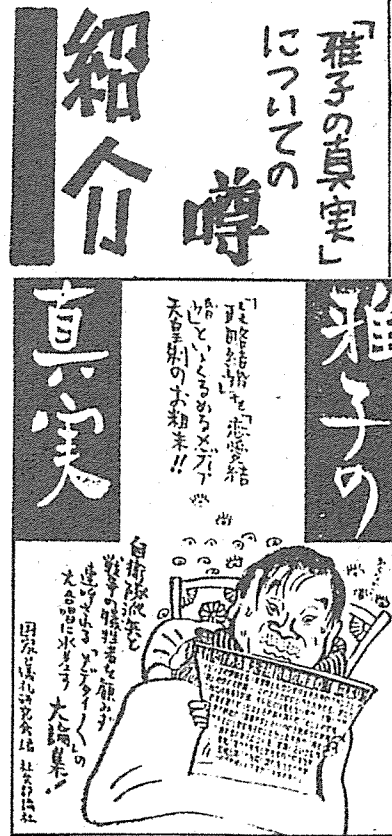 「雅子の真実」
についての
噂
紹介
雅子の
真実
「政略結婚」を「恋愛結
婚」といいくるめるメディア
天皇制のお粗末!!
自衛隊派兵と
戦争の犠牲者を顧みず
連呼される「おめでタイ〜」の
大合唱に水をさす 大論集!!
社会評論社